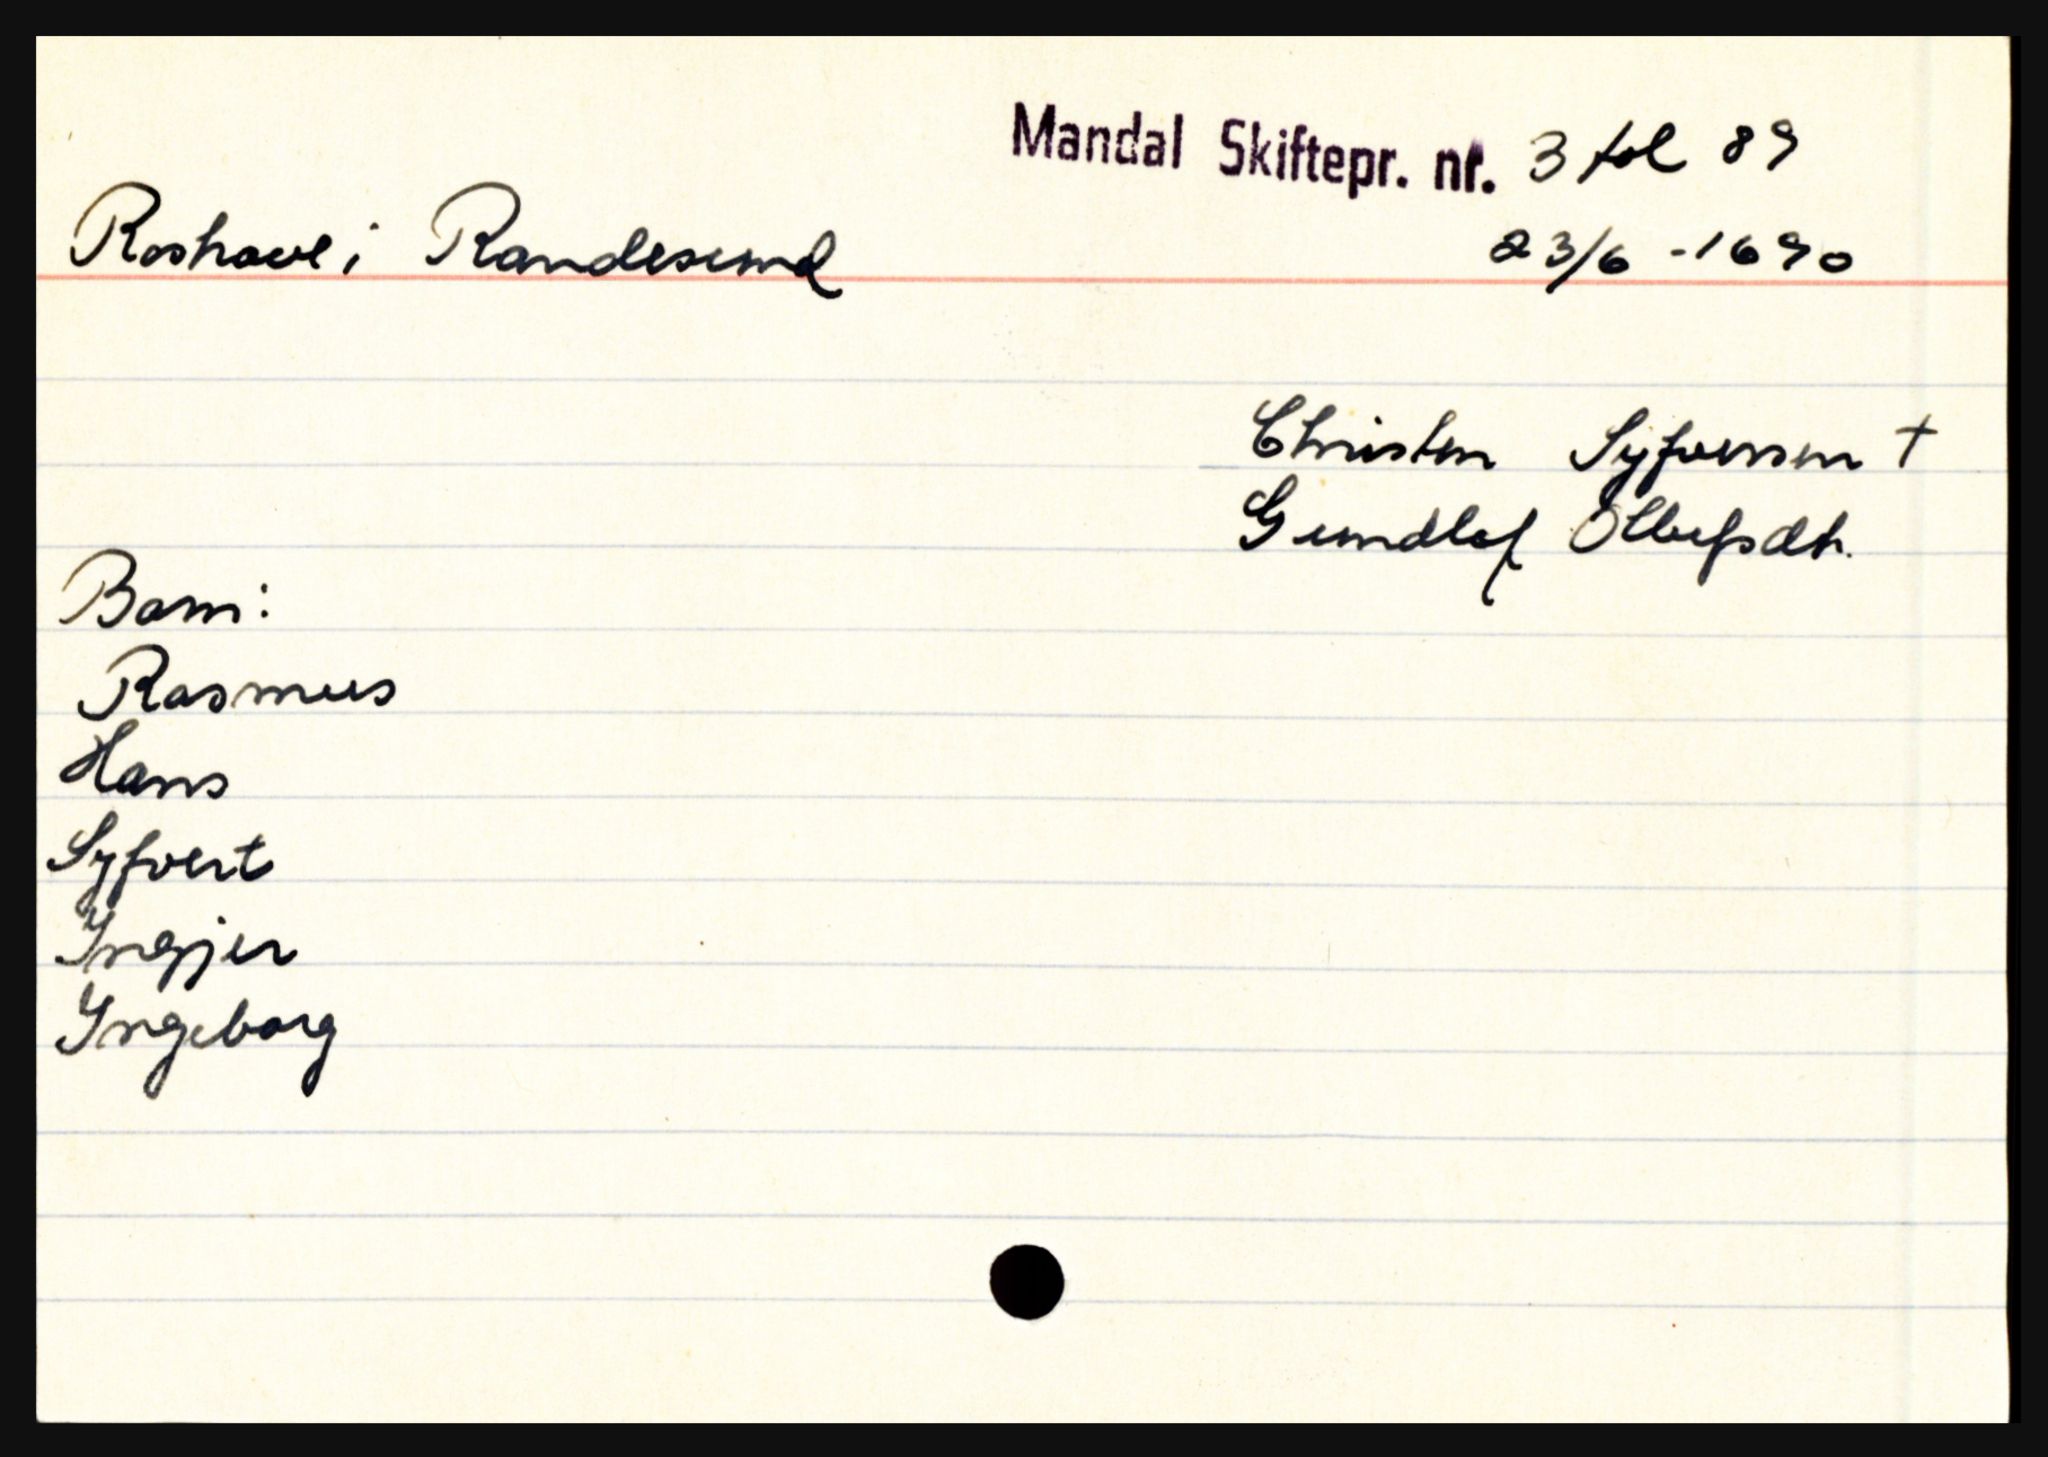 Mandal Skiftepr. nr. 3 fol 89
Roshave i Randesund 23/6 -1690
Christen Syfversen †
Gundlof Olbefsdtr.
Barn:
Rasmus
Hans
Syfvert
Ingjer
Ingeborg